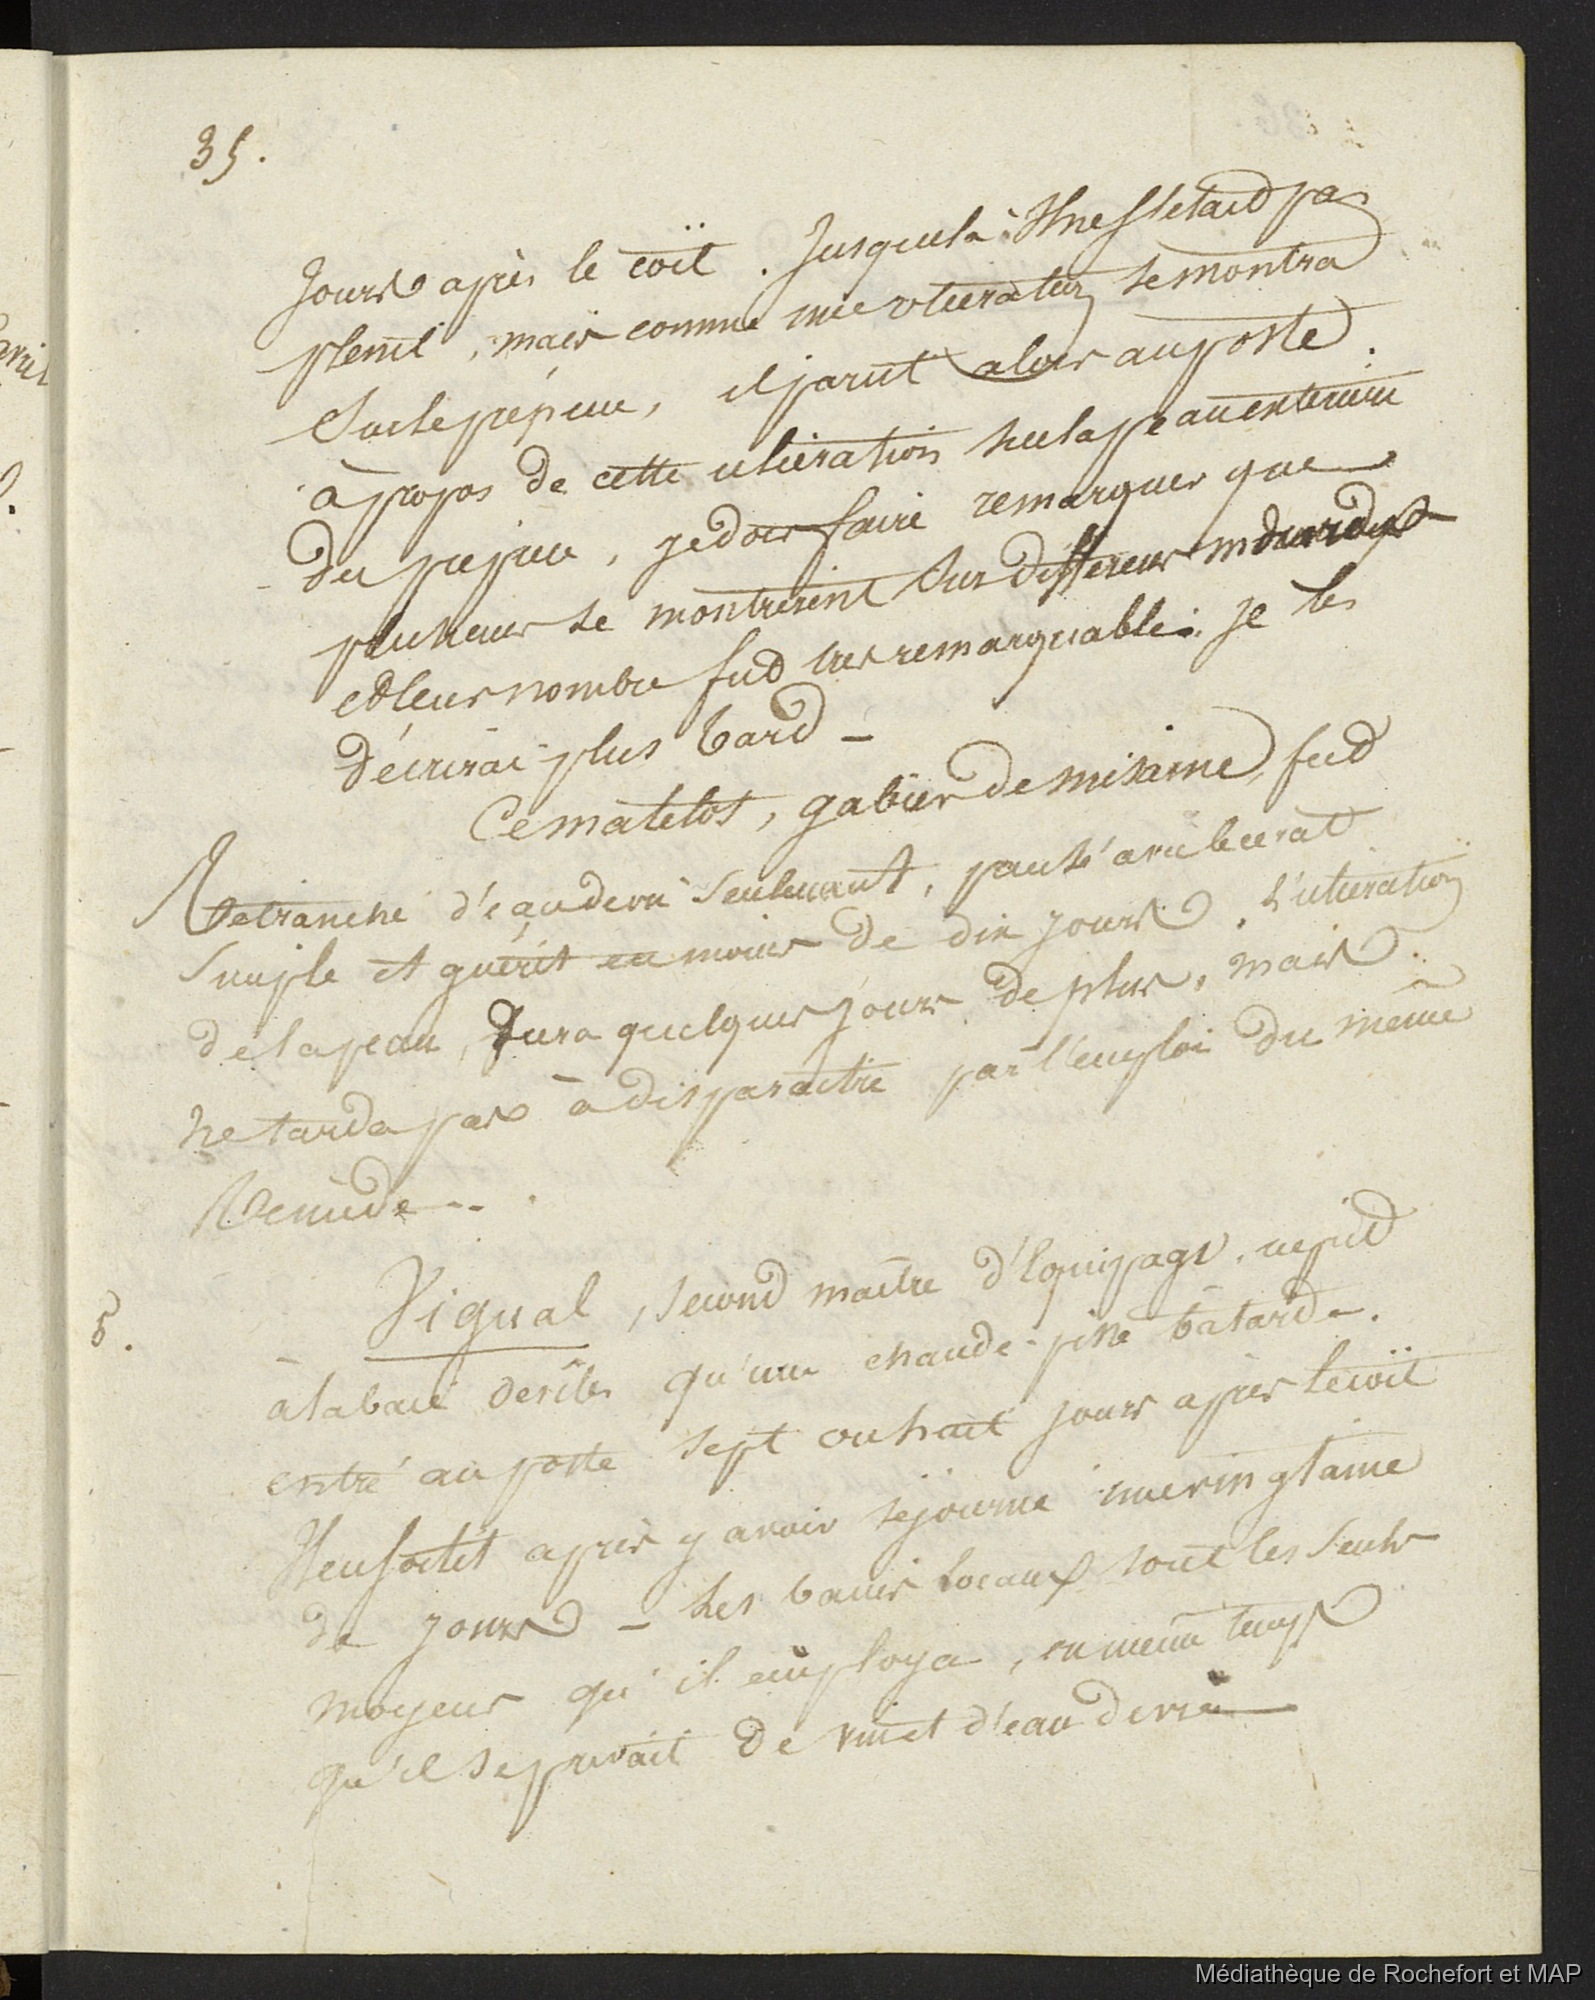 35.
jours après le coït. Jusque là il ne s'était pas
plaint, mais comme une ulceration se montra
sur le prépuce, il parut alors au poste.
à propos de cette ulcération sur la peau exterieure
du prepuce, je dois faire remarquer que
plusieurs se montrèrent sur differens individus
et leur nombre fut très remarquable. je les
décrirai plus tard —
Ce matelot, gabier de misaine, fut
Retranché d'eau de vie seulement, pansé au cerat
simple et guérit en moins de dix jours. L'ulceration
de la peau, dura quelques jours de plus, mais
ne tarda pas à disparaitre par l'emploi du même
Remède --.
5.
Vigual, second maître d'équipage. ne prit
à la baie des iles qu'une chaude-pisse bâtarde.
entré au poste sept ou huit jours apres le coït
Il en sortit après y avoir séjourné une vingtaine
de jours — Les bains locaux sont les seuls
moyens qu'il employa, en meme temps
qu'il se privait de vin et d'eau de vie —
Médiathèque de Rochefort et MAP